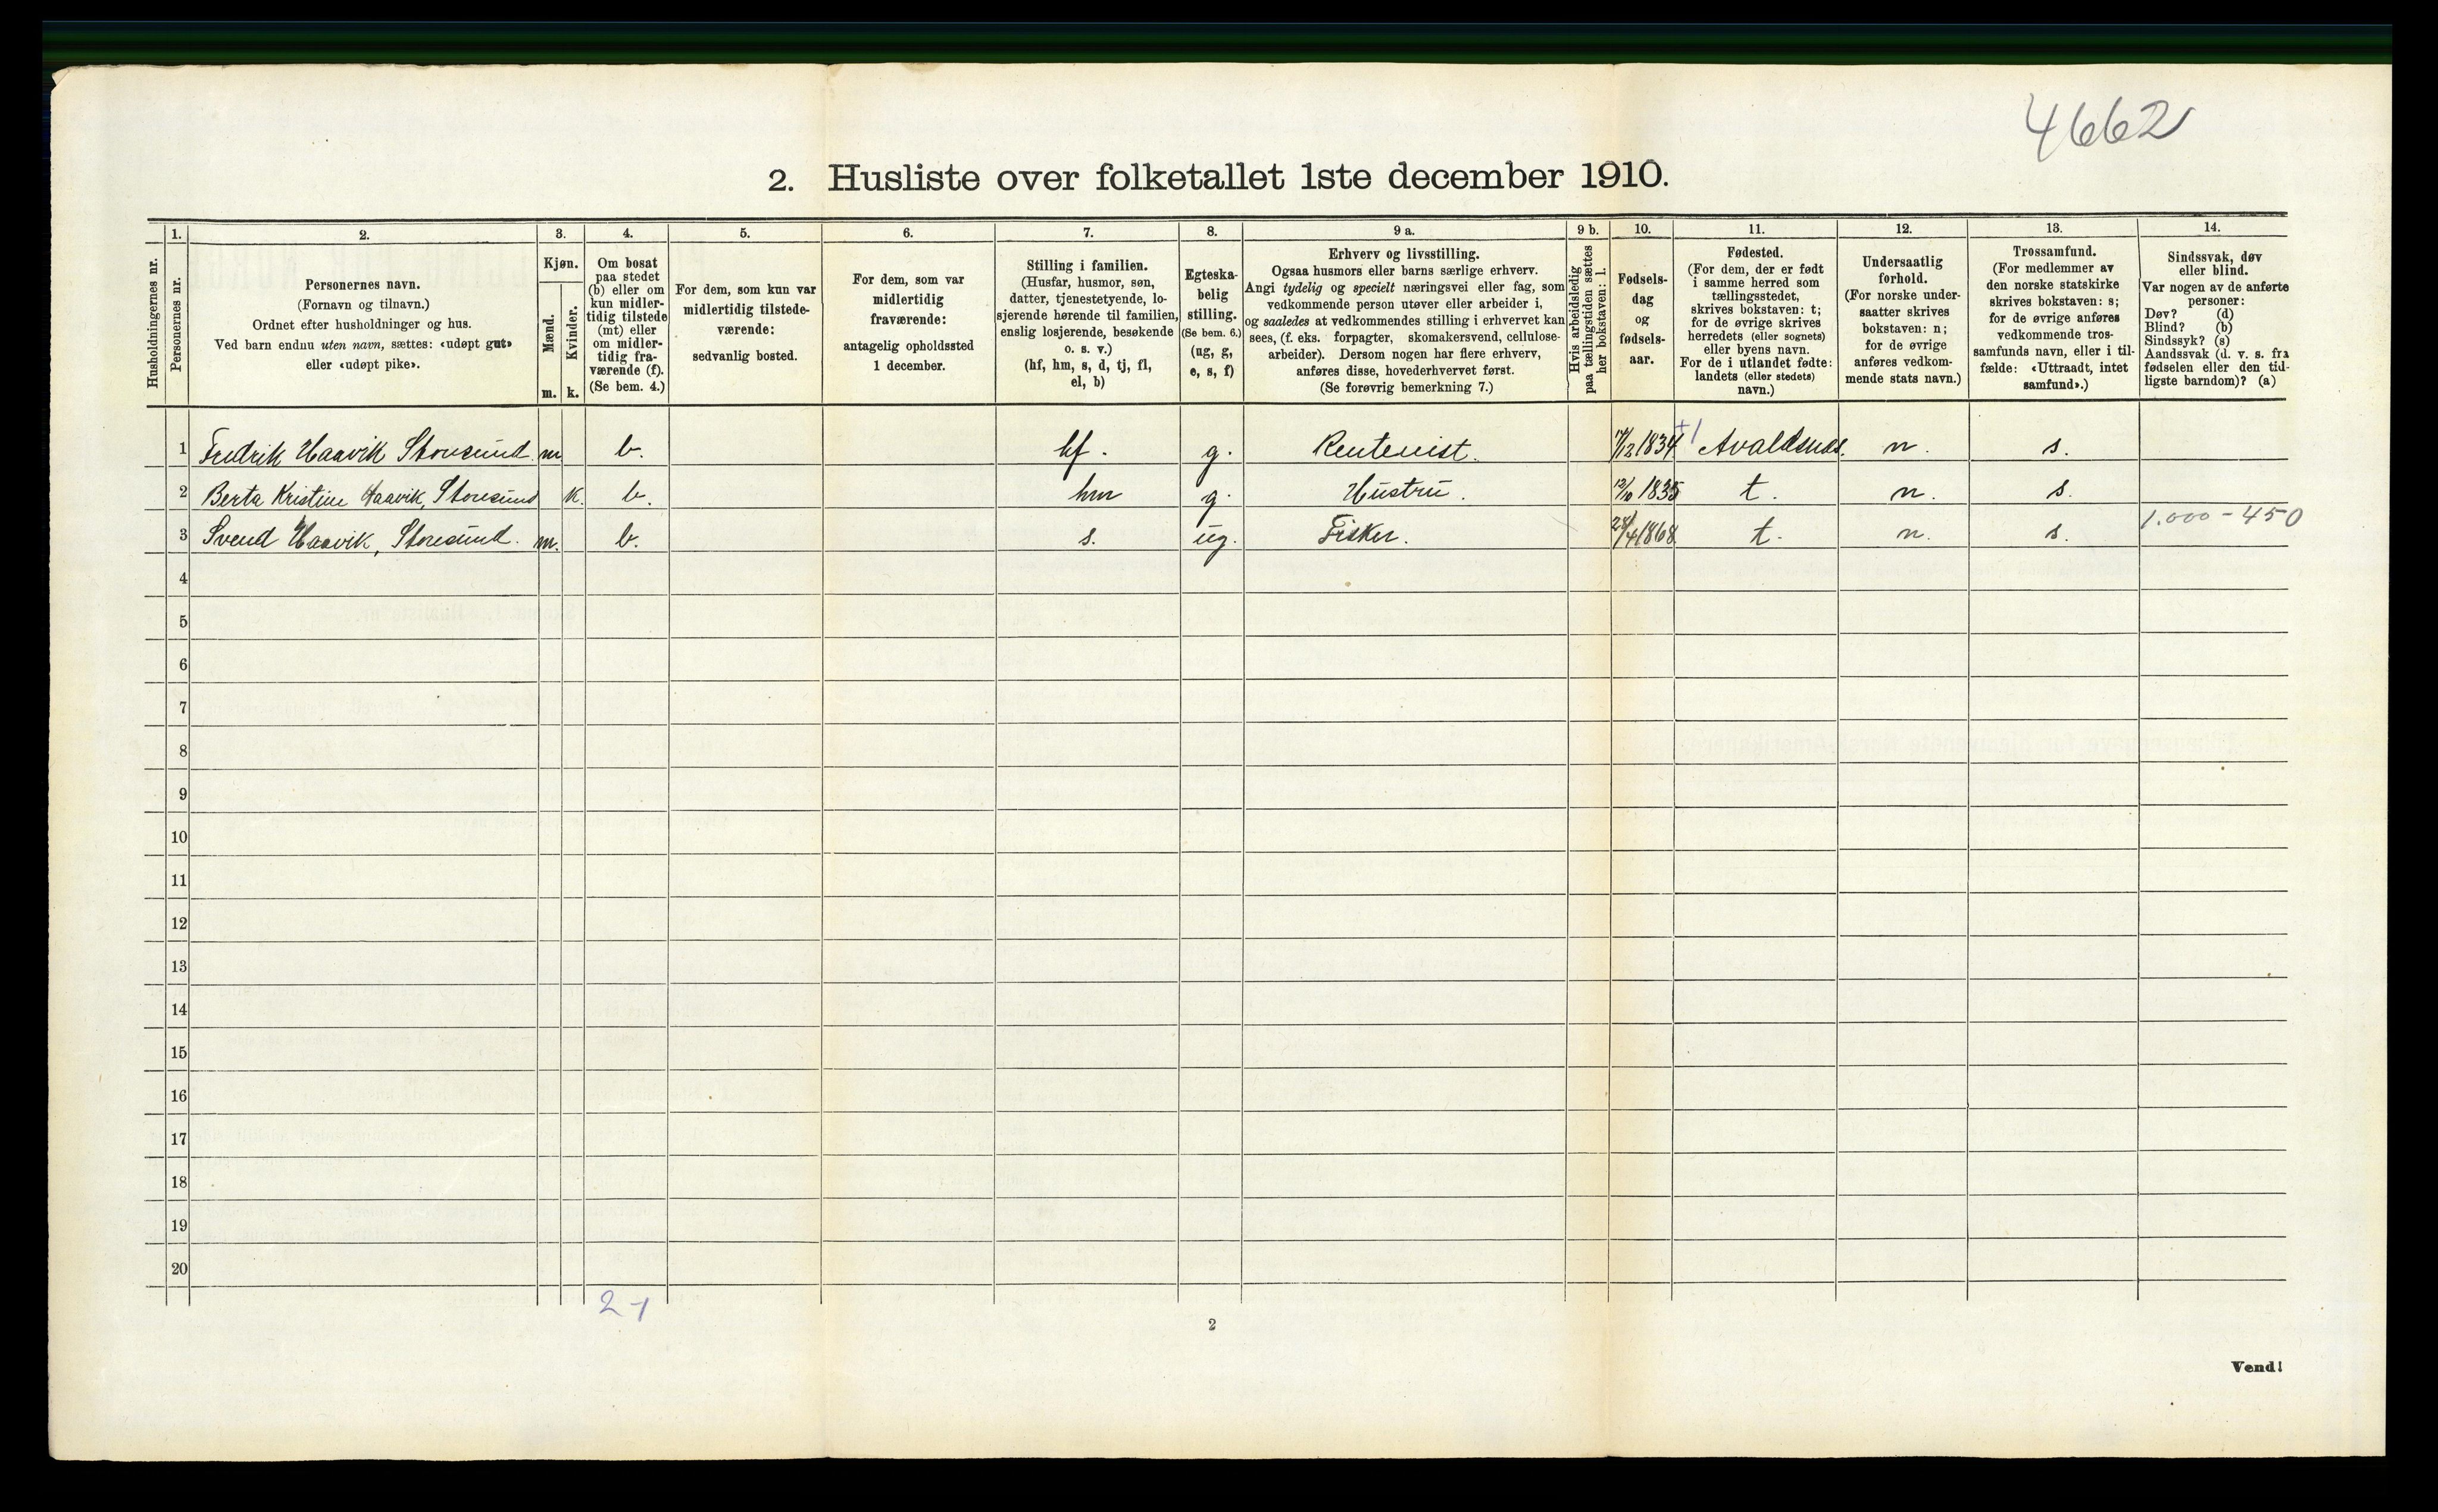 4662
2. Husliste over folketallet 1ste december 1910.
Husholdningernes nr.
1.
Personernes nr.
2.
Personernes navn.
(Fornavn og tilnavn.)
Ordnet efter husholdninger og hus.
Ved barn endnu uten navn, sættes: «udøpt gut»
eller «udøpt pike».
3.
Kjøn.
Mænd.
Kvinder.
m. k.
4.
Om bosat
paa stedet
(b) eller om
kun midler-
tidig tilstede
(mt) eller
om midler-
tidig fra-
værende (f).
(Se bem. 4.)
5.
For dem, som kun var
midlertidig tilstede-
værende:
sedvanlig bosted.
6.
For dem, som var
midlertidig
fraværende:
antagelig opholdssted
1 december.
7.
Stilling i familien.
(Husfar, husmor, søn,
datter, tjenestetyende, lo-
sjerende hørende til familien,
enslig losjerende, besøkende
o. s. v.)
(hf, hm, s, d, tj, fl,
el, b)
8.
Egteska-
belig
stilling.
(Se bem. 6.)
(ug, g,
e, s, f)
9 a.
Erhverv og livsstilling.
Ogsaa husmors eller barns særlige erhverv.
Angi tydelig og specielt næringsvei eller fag, som
vedkommende person utøver eller arbeider i,
og saaledes at vedkommendes stilling i erhvervet kan
sees, (f. eks. forpagter, skomakersvend, cellulose-
arbeider). Dersom nogen har flere erhverv,
anføres disse, hovederhvervet først.
(Se forøvrig bemerkning 7.)
9 b.
Hvis arbeidsledig
paa tællingstiden sættes
her bokstaven: l.
10.
Fødsels-
dag
og
fødsels-
aar.
11.
Fødested.
(For dem, der er født
i samme herred som
tællingsstedet,
skrives bokstaven: t;
for de øvrige skrives
herredets (eller sognets)
eller byens navn.
For de i utlandet fødte:
landets (eller stedets)
navn.)
12.
Undersaatlig
forhold.
(For norske under-
saatter skrives
bokstaven: n;
for de øvrige
anføres vedkom-
mende stats navn.)
13.
Trossamfund.
(For medlemmer av
den norske statskirke
skrives bokstaven: s;
for de øvrige anføres
vedkommende tros-
samfunds navn, eller i til-
fælde: «Uttraadt, intet
samfund».)
14.
Sindssvak, døv
eller blind.
Var nogen av de anførte
personer:
Døv? (d)
Blind? (b)
Sindssyk? (s)
Aandssvak (d. v. s. fra
fødselen eller den tid-
ligste barndom)? (a)
1 Fredrik Haavik Storesund. m b. hf. g. Rentenist. 1834 +1 Avaldsnes. n. s.
2 Berta Kristine Haavik, Storesund k. b. hm g. Hustru. 12/10 1835 t. n. s.
3 Svend Haavik, Storesund. m. b. s. ug. Fisker. 28/4 1868 t. n. s. 1.000 - 450
4
5
6
7
8
9
10
11
12
13
14
15
16
17
18
19
20
2-1
2
Vend!